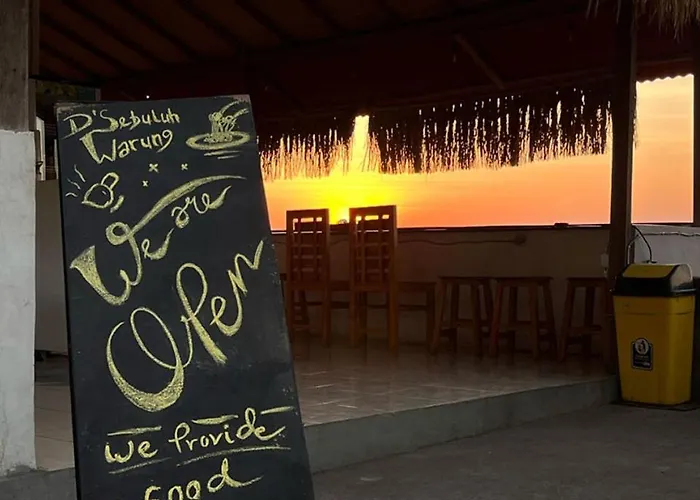 D'Sebuluh
Warung
We are
Open
We Provide
Good